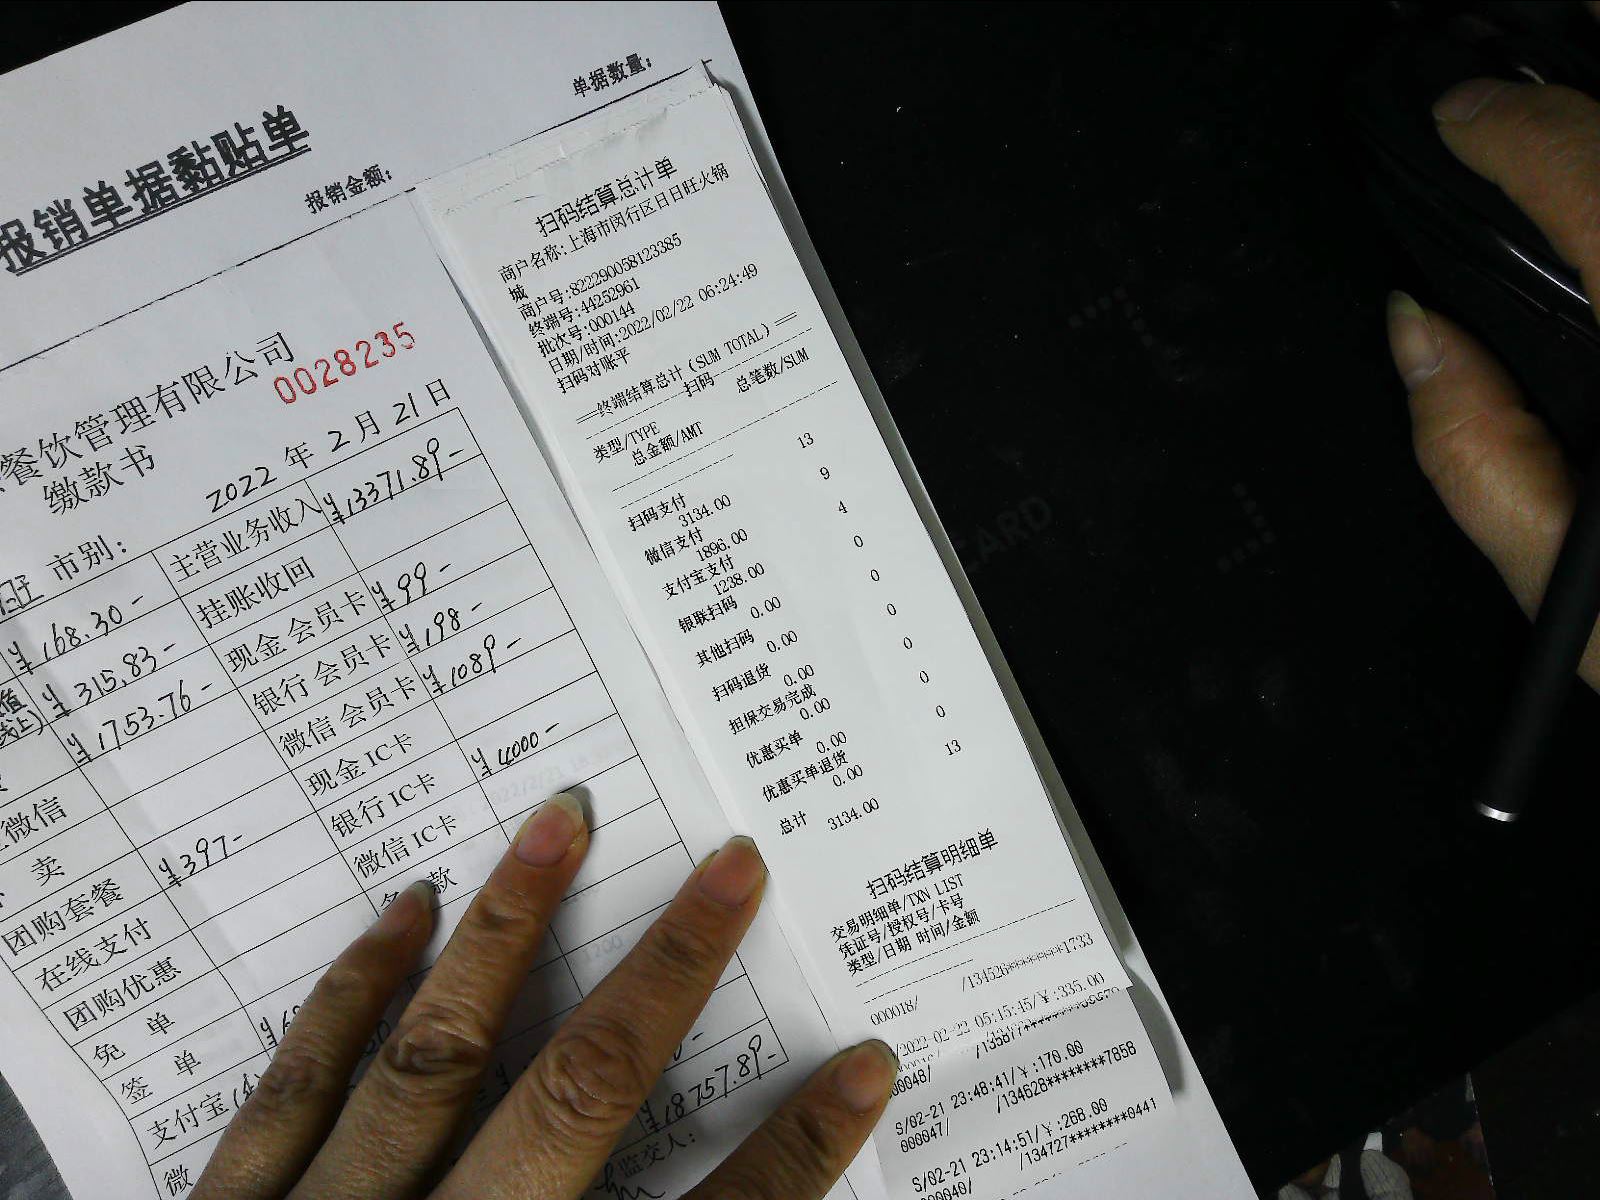 报销单据黏贴单
报销金额:
单据数量:
餐饮管理有限公司
0028235
缴款书
2022 年 2 月 21 日
市别:
主营业务收入 ¥13371.89-
¥168.30- 挂账收回
¥315.83- 现金会员卡 ¥99-
¥1753.76- 银行会员卡 ¥198-
微信会员卡 ¥1089-
微信 现金IC卡
卖 银行IC卡 ¥4000-
团购套餐 ¥397- 微信IC卡
在线支付 款
团购优惠
免 单
签 单
支付宝
微
¥18757.89-
监交人:
扫码结算总计单
商户名称:上海市闵行区日日旺火锅
城
商户号:822290058123385
终端号:44252961
批次号:000144
日期/时间:2022/02/22 06:24:49
扫码对账平
==终端结算总计(SUM TOTAL)==
扫码
类型/TYPE 总笔数/SUM
总金额/AMT
扫码支付 13
3134.00
微信支付 9
1896.00
支付宝支付 4
1238.00
银联扫码 0
0.00
其他扫码 0
0.00
扫码退货 0
0.00
担保交易完成 0
0.00
优惠买单 0
0.00
优惠买单退货 0
0.00
总计 13
3134.00
扫码结算明细单
交易明细单/TXN LIST
凭证号/授权号/卡号
类型/日期 时间/金额
000018/ /134526********1733
/2022-02-22 05:15:45/¥:335.00
000048/
S/02-21 23:48:41/¥:170.00
000047/ /134628********7858
S/02-21 23:14:51/¥:268.00
000040/ /134727********0441